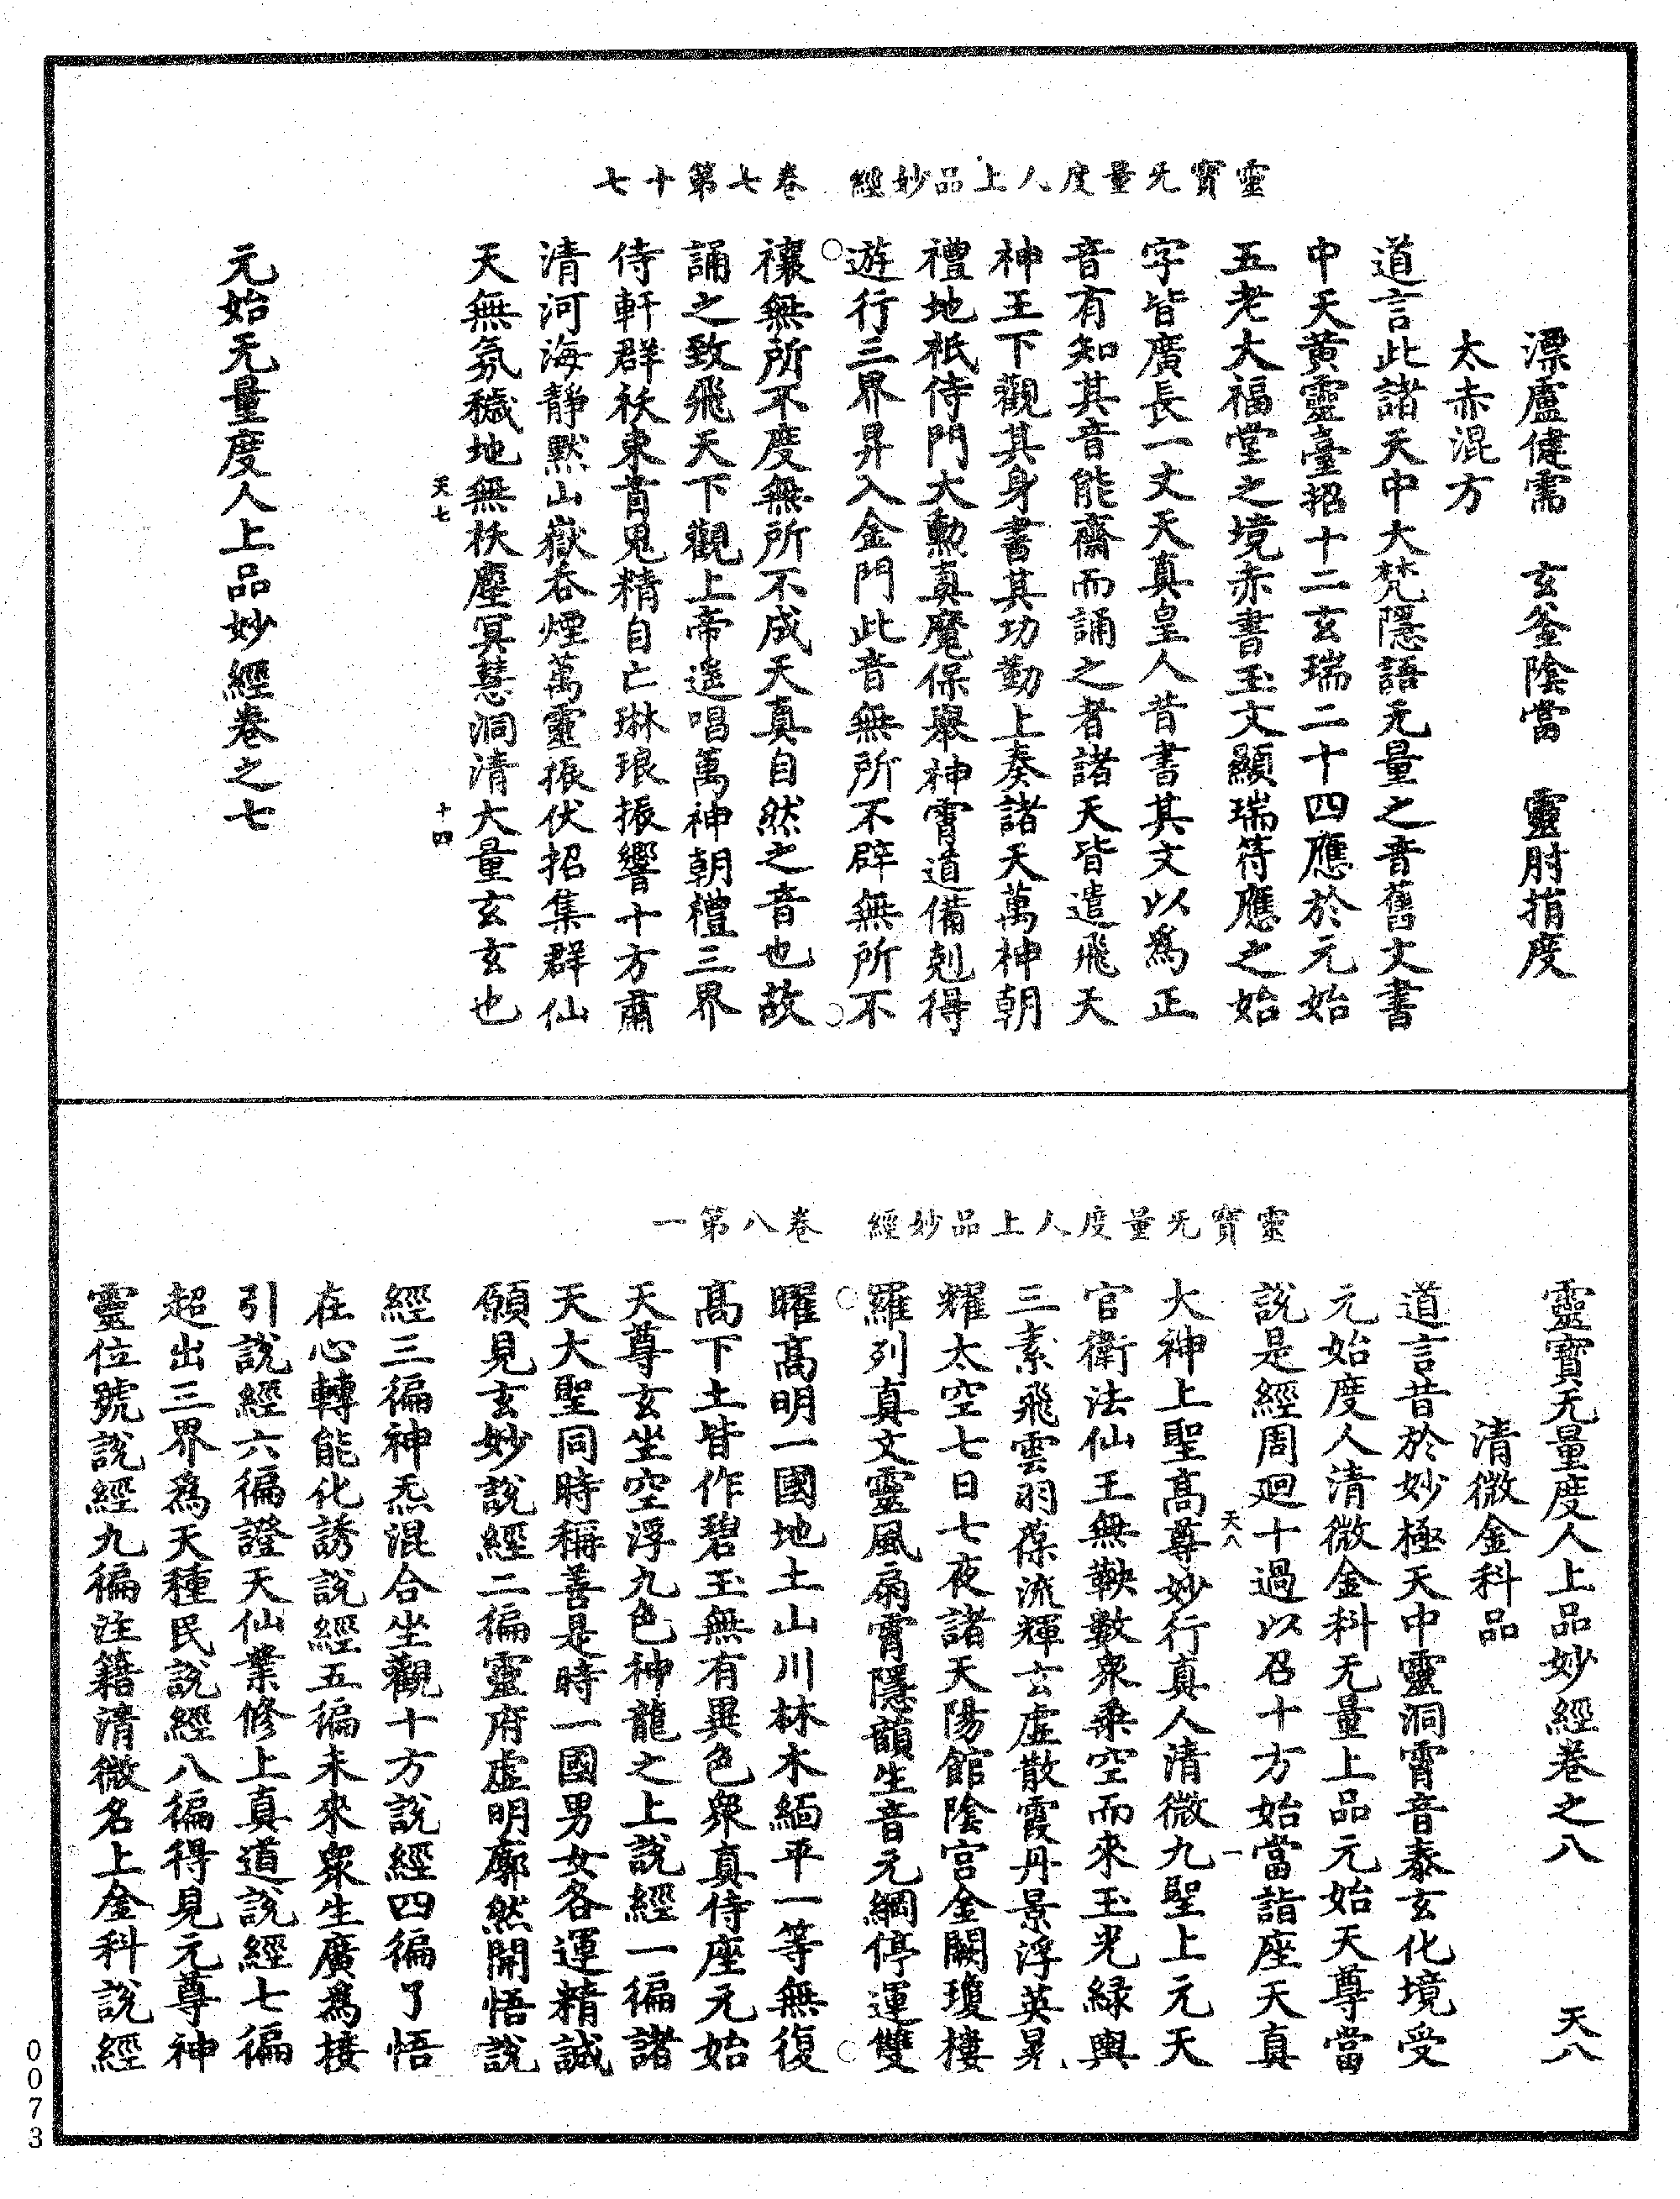 靈寶无量度人上品妙經　卷七第十七
漂廬健需　玄釜陰當　靈肘捎度
太赤混方
道言此諸天中大梵隱語无量之音舊文書
中天黃靈臺招十二玄瑞二十四應於元始
五老大福堂之境赤書玉文顯瑞符應之始
字皆廣長一丈天真皇人昔書其文以爲正
音有知其音能齋而誦之者諸天皆遣飛天
神王下觀其身書其功勤上奏諸天萬神朝
禮地祇侍門大勳真魔保舉神霄道備剋得
遊行三界昇入金門此音無所不辟無所不
禳無所不度無所不成天真自然之音也故
誦之致飛天下觀上帝遥唱萬神朝禮三界
侍軒群袄束首鬼精自亡琳琅振響十方肅
清河海靜默山嶽吞煙萬靈振伏招集群仙
天無氛穢地無袄塵冥慧洞清大量玄玄也
天七　十四
元始无量度人上品妙經卷之七
靈寶无量度人上品妙經　卷八第一
靈寶无量度人上品妙經卷之八　天八
清微金科品
道言昔於妙極天中靈洞霄音泰玄化境受
元始度人清微金科无量上品元始天尊當
說是經周迴十過以召十方始當詣座天真
天八　一
大神上聖高尊妙行真人清微九聖上元天
官衛法仙王無鞅數衆乗空而來玉光緑輿
三素飛雲羽葆流輝玄虛散霞丹景浮英晃
耀太空七日七夜諸天陽館陰宫金闕瓊樓
羅列真文靈風扇霄隱韻生音元綱停運雙
曜高明一國地土山川林木緬平一等無復
高下土皆作碧玉無有異色衆真侍座元始
天尊玄坐空浮九色神龍之上說經一徧諸
天大聖同時稱善是時一國男女各運精誠
願見玄妙說經二徧靈府虛明廓然開悟說
經三徧神炁混合坐觀十方說經四徧了悟
在心轉能化誘說經五徧未來衆生廣爲接
引說經六徧證天仙業修上真道說經七徧
超出三界爲天種民說經八徧得見元尊神
靈位號說經九徧注籍清微名上金科說經
0073